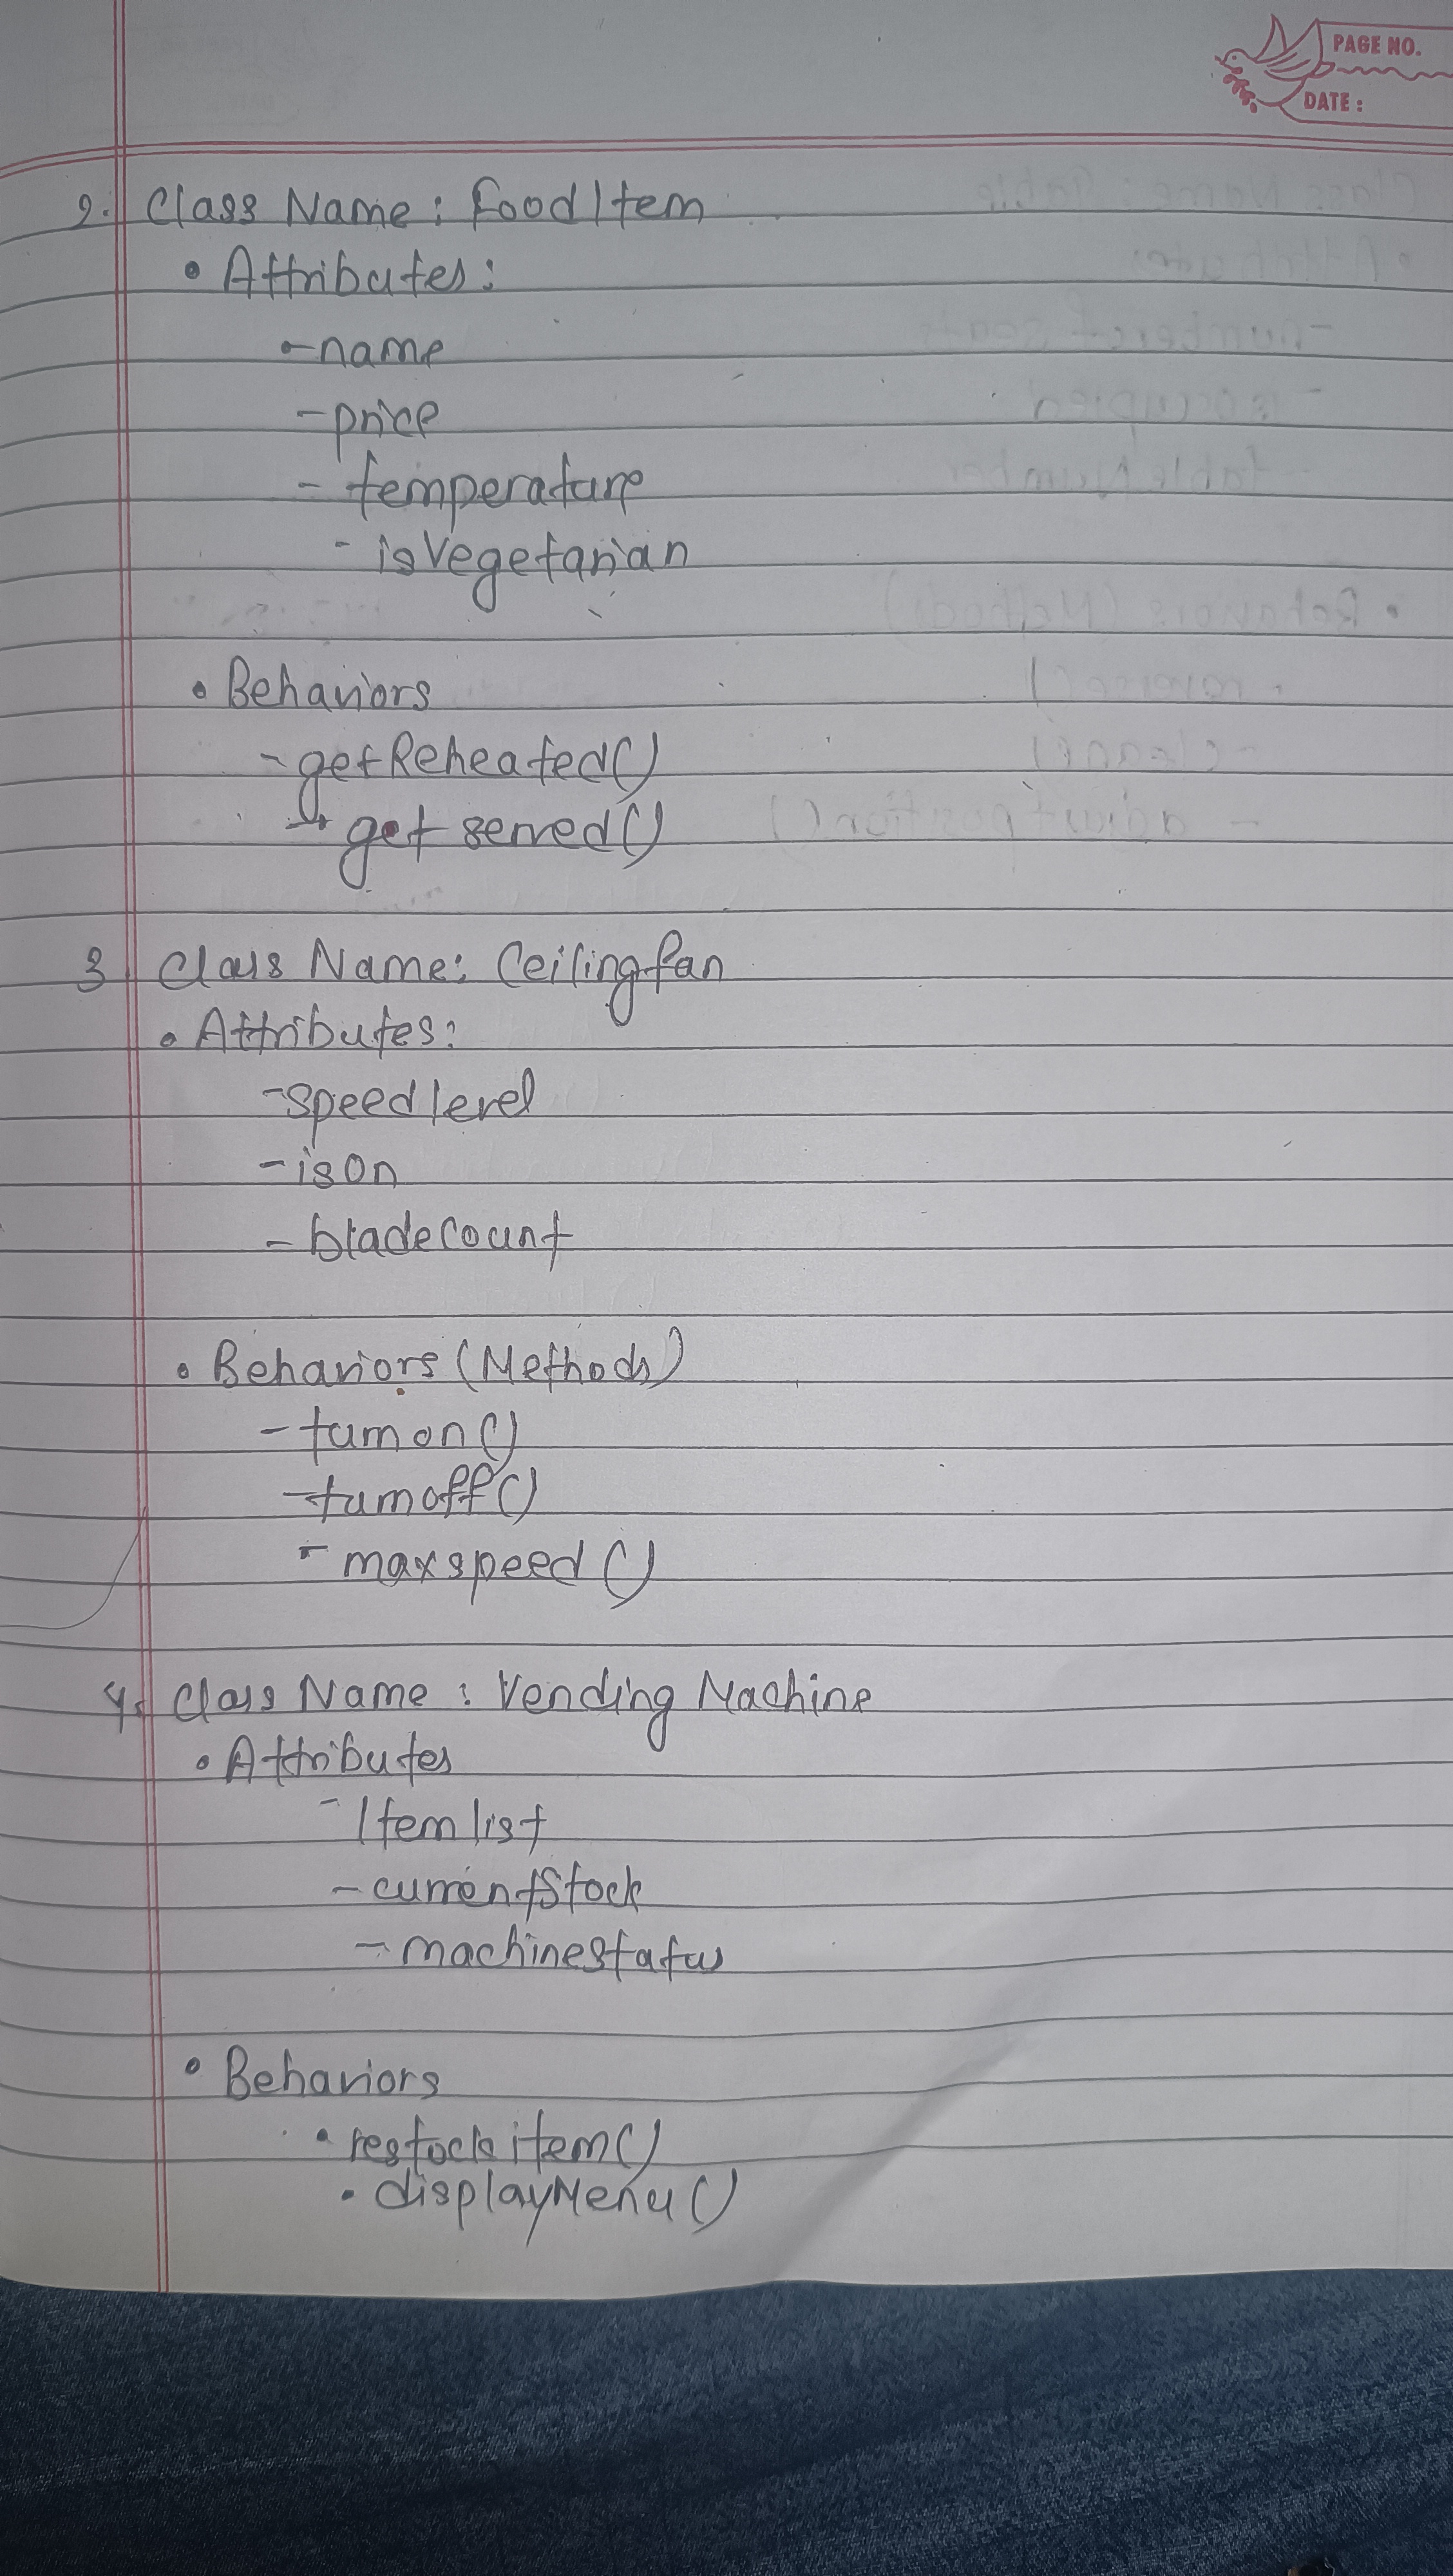 PAGE NO.
DATE :
2. Class Name : FoodItem
• Attributes :
- name
- price
- temperature
- isVegetarian
• Behaviors
- getReheated()
- get served()
3 Class Name : Ceilingfan
• Attributes :
- speedlevel
- ison
- bladeCount
• Behaviors (Methods)
- turnon()
- turnoff()
- maxspeed ()
4. Class Name : Vending Machine
• Attributes
- Itemlist
- currentStock
- machinestatus
• Behaviors
• restock item()
• displayMenu()